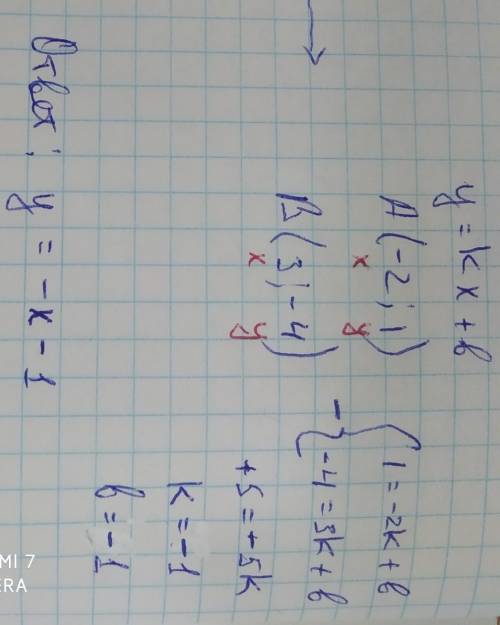 y = kx + b
A(-2; 1)
x y
B(3; -4)
x y
1 = -2k + b
-
-4 = 3k + b
+5 = -5k
k = -1
b = -1
Ответ: y = -x - 1
MI 7
ERA